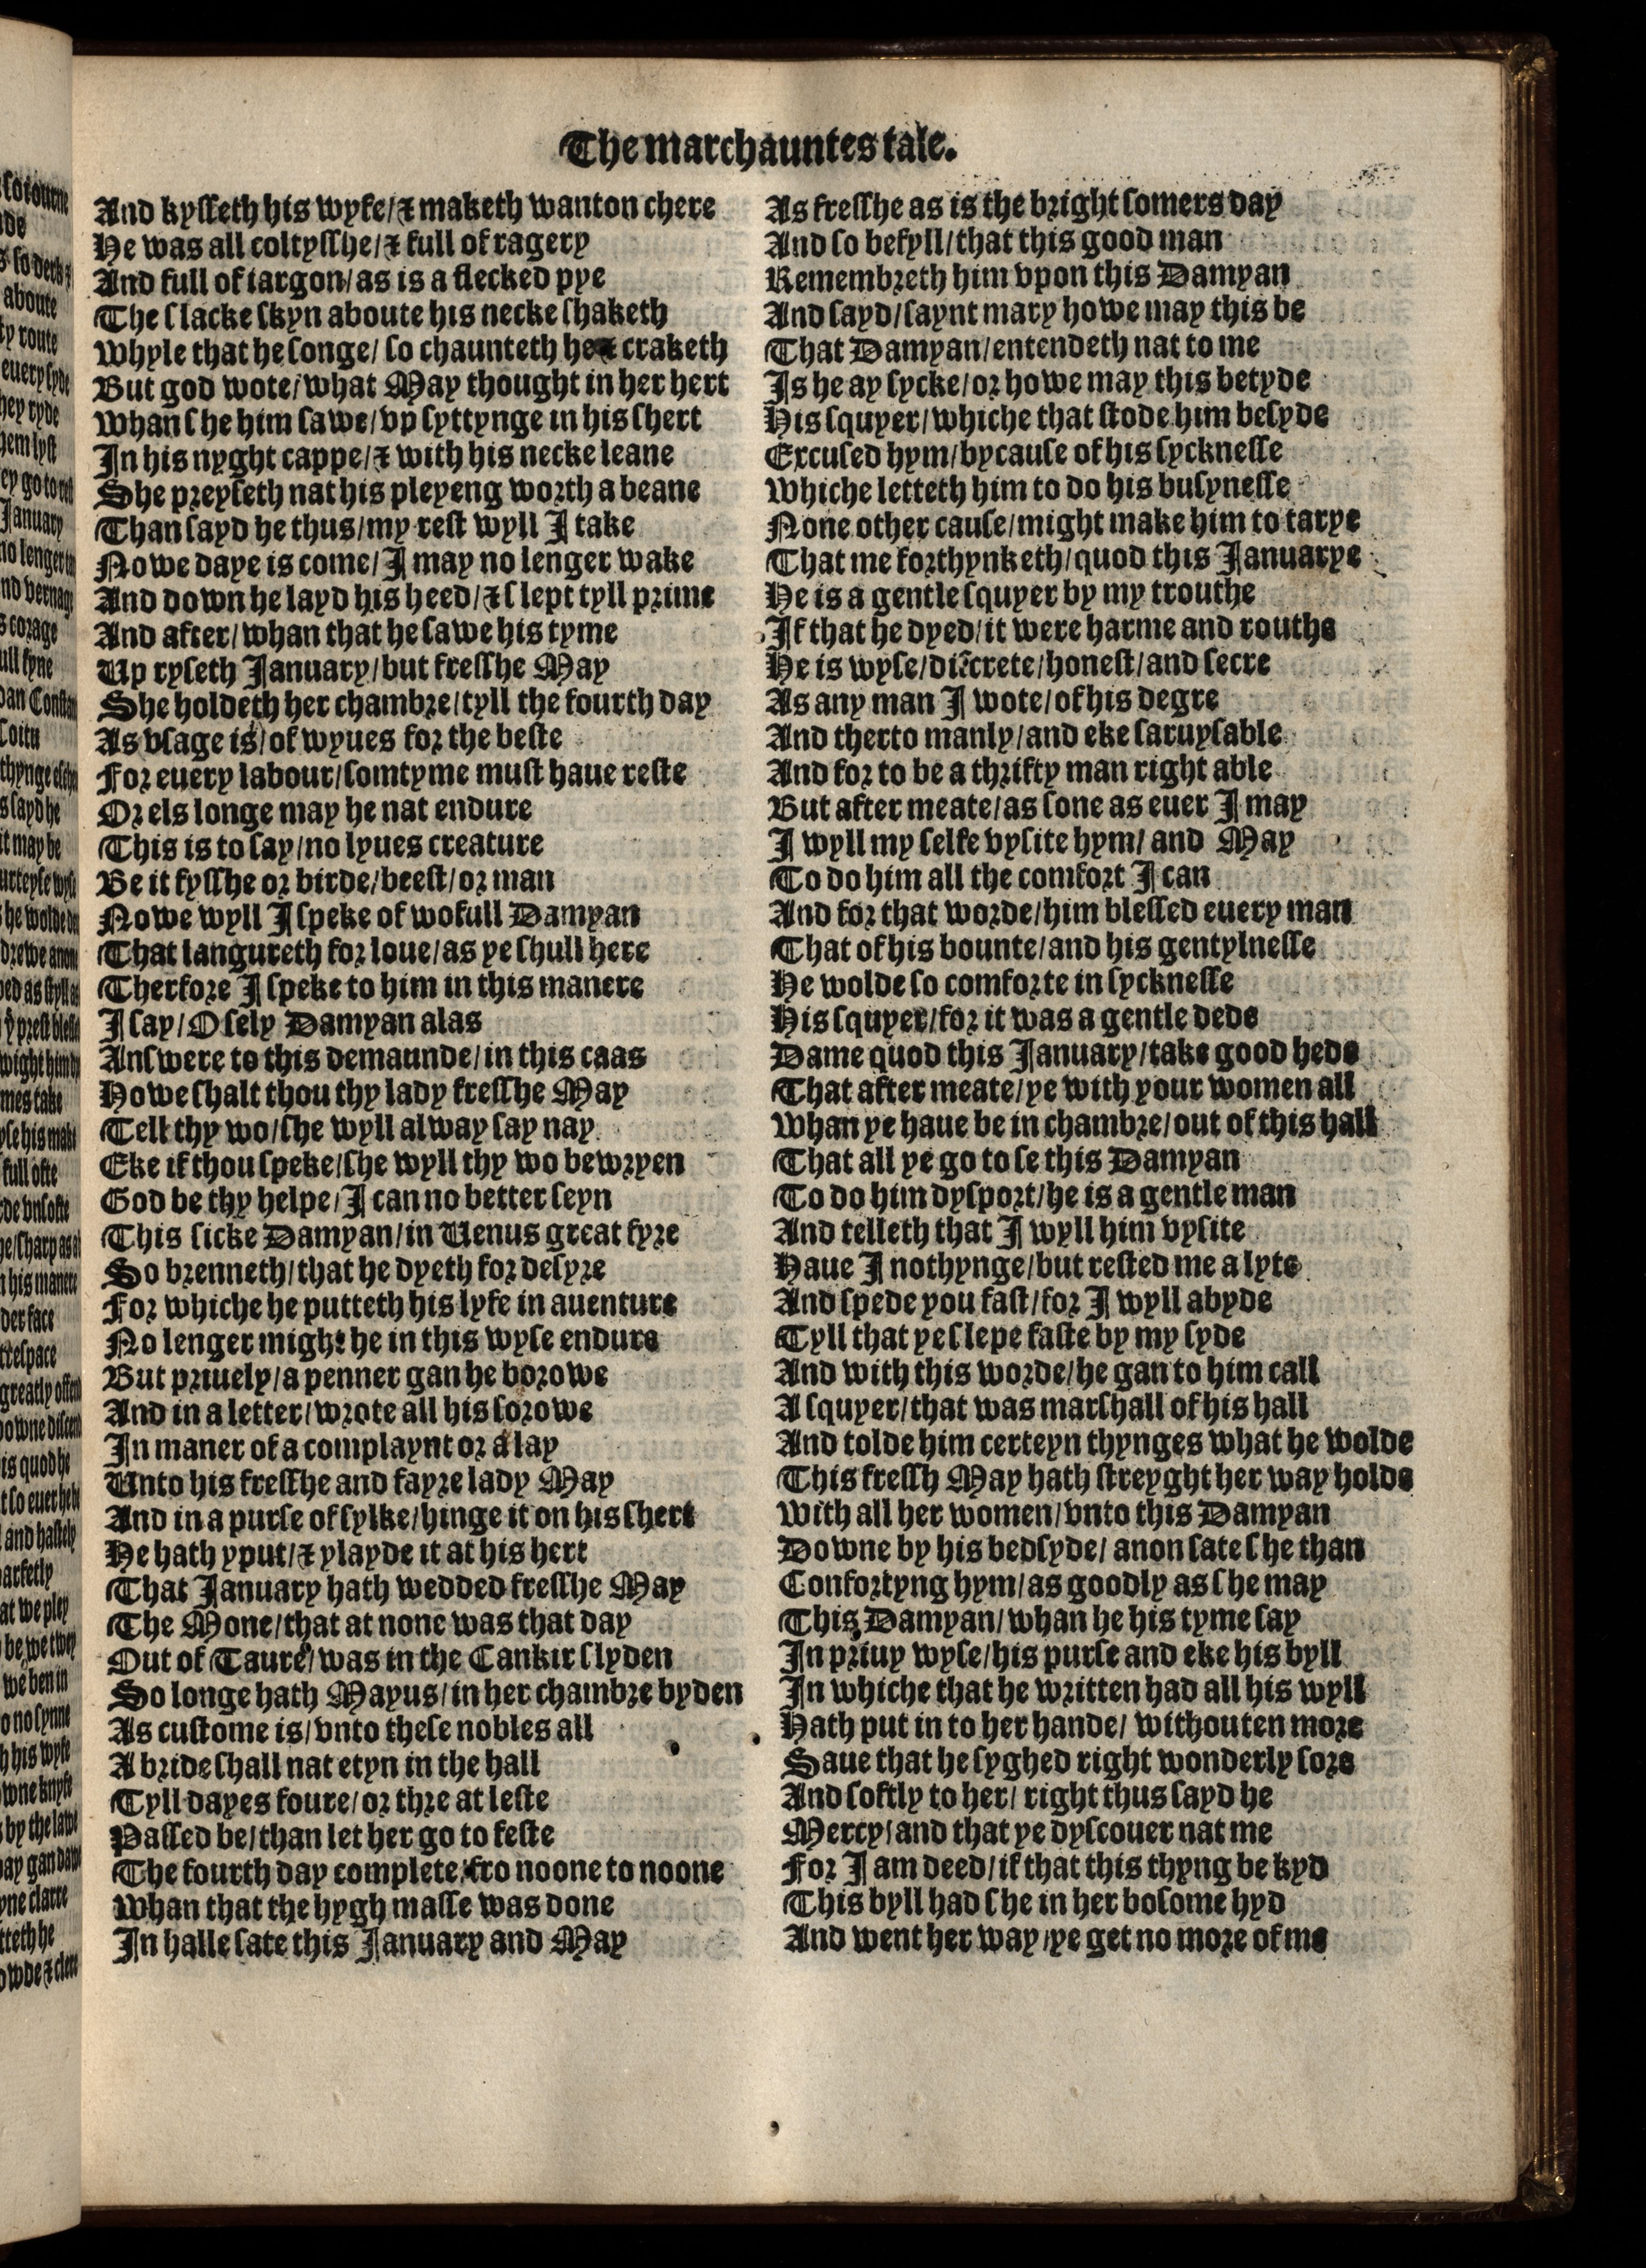 The marchauntes tale.
And kyſſeth his wyfe/⁊ maketh wanton chere
He was all coltyſſhe/⁊ full of ragery
And full of iargon/as is a flecked pye
The ſlacke ſkyn aboute his necke ſhaketh
Whyle that he ſonge/ ſo chaunteth he ⁊ craketh
But god wote/what May thought in her hert
Whan ſhe him ſawe/vp ſyttynge in his ſhert
In his nyght cappe/⁊ with his necke leane
She preyſeth nat his pleyeng worth a beane
Than ſayd he thus/my reſt wyll I take
Nowe daye is come/I may no lenger wake
And down he layd his heed/⁊ ſlept tyll prime
And after/whan that he ſawe his tyme
Up ryſeth January/but freſſhe May
She holdeth her chambre/tyll the fourth day
As vſage is/of wyues for the beſte
For euery labour/ſomtyme muſt haue reſte
Or els longe may he nat endure
This is to ſay/no lyues creature
Be it fyſſhe or birde/beeſt/or man
Nowe wyll I ſpeke of wofull Damyan
That langureth for loue/as ye ſhull here
Therfore I ſpeke to him in this manere
I ſay/O ſely Damyan alas
Anſwere to this demaunde/in this caas
Howe ſhalt thou thy lady freſſhe May
Tell thy wo/ſhe wyll alway ſay nay
Eke if thou ſpeke/ſhe wyll thy wo bewryen
God be thy helpe/I can no better ſeyn
This ſicke Damyan/in Uenus great fyre
So brenneth/that he dyeth for deſyre
For whiche he putteth his lyfe in auenture
No lenger might he in this wyſe endure
But priuely/a penner gan he borowe
And in a letter/wrote all his ſorowe
In maner of a complaynt or a lay
Unto his freſſhe and fayre lady May
And in a purſe of ſylke/hinge it on his ſhert
He hath yput/⁊ ylayde it at his hert
That January hath wedded freſſhe May
The Mone/that at none was that day
Out of Taure/was in the Cankir ſlyden
So longe hath Mayus/in her chambre byden
As cuſtome is/vnto theſe nobles all
A bride ſhall nat etyn in the hall
Tyll dayes foure/or thre at leſte
Paſſed be/than let her go to feſte
The fourth day complete/fro noone to noone
Whan that the hygh maſſe was done
In halle ſate this January and May
As freſſhe as is the bright ſomers day
And ſo befyll/that this good man
Remembreth him vpon this Damyan
And ſayd/ſaynt mary howe may this be
That Damyan/entendeth nat to me
Is he ay ſycke/or howe may this betyde
His ſquyer/whiche that ſtode him beſyde
Excuſed hym/bycauſe of his ſyckneſſe
Whiche letteth him to do his buſyneſſe
None other cauſe/might make him to tarye
That me forthynketh/quod this Januarye
He is a gentle ſquyer by my trouthe
If that he dyed/it were harme and routhe
He is wyſe/diſcrete/honeſt/and ſecre
As any man I wote/of his degre
And therto manly/and eke ſaruyſable
And for to be a thrifty man right able
But after meate/as ſone as euer I may
I wyll my ſelfe vyſite hym/ and May
To do him all the comfort I can
And for that worde/him bleſſed euery man
That of his bounte/and his gentylneſſe
He wolde ſo comforte in ſyckneſſe
His ſquyer/for it was a gentle dede
Dame quod this January/take good hede
That after meate/ye with your women all
Whan ye haue be in chambre/out of this hall
That all ye go to ſe this Damyan
To do him dyſport/he is a gentle man
And telleth that I wyll him vyſite
Haue I nothynge/but reſted me a lyte
And ſpede you faſt/for I wyll abyde
Tyll that ye ſlepe faſte by my ſyde
And with this worde/he gan to him call
A ſquyer/that was marſhall of his hall
And tolde him certeyn thynges what he wolde
This freſſh May hath ſtreyght her way holde
With all her women/vnto this Damyan
Downe by his bedſyde/ anon ſate ſhe than
Confortyng hym/as goodly as ſhe may
This Damyan/whan he his tyme ſay
In priuy wyſe/his purſe and eke his byll
In whiche that he written had all his wyll
Hath put in to her hande/ withouten more
Saue that he ſyghed right wonderly ſore
And ſoftly to her/ right thus ſayd he
Mercy/and that ye dyſcouer nat me
For I am deed/if that this thyng be kyd
This byll had ſhe in her boſome hyd
And went her way/ye get no more of me